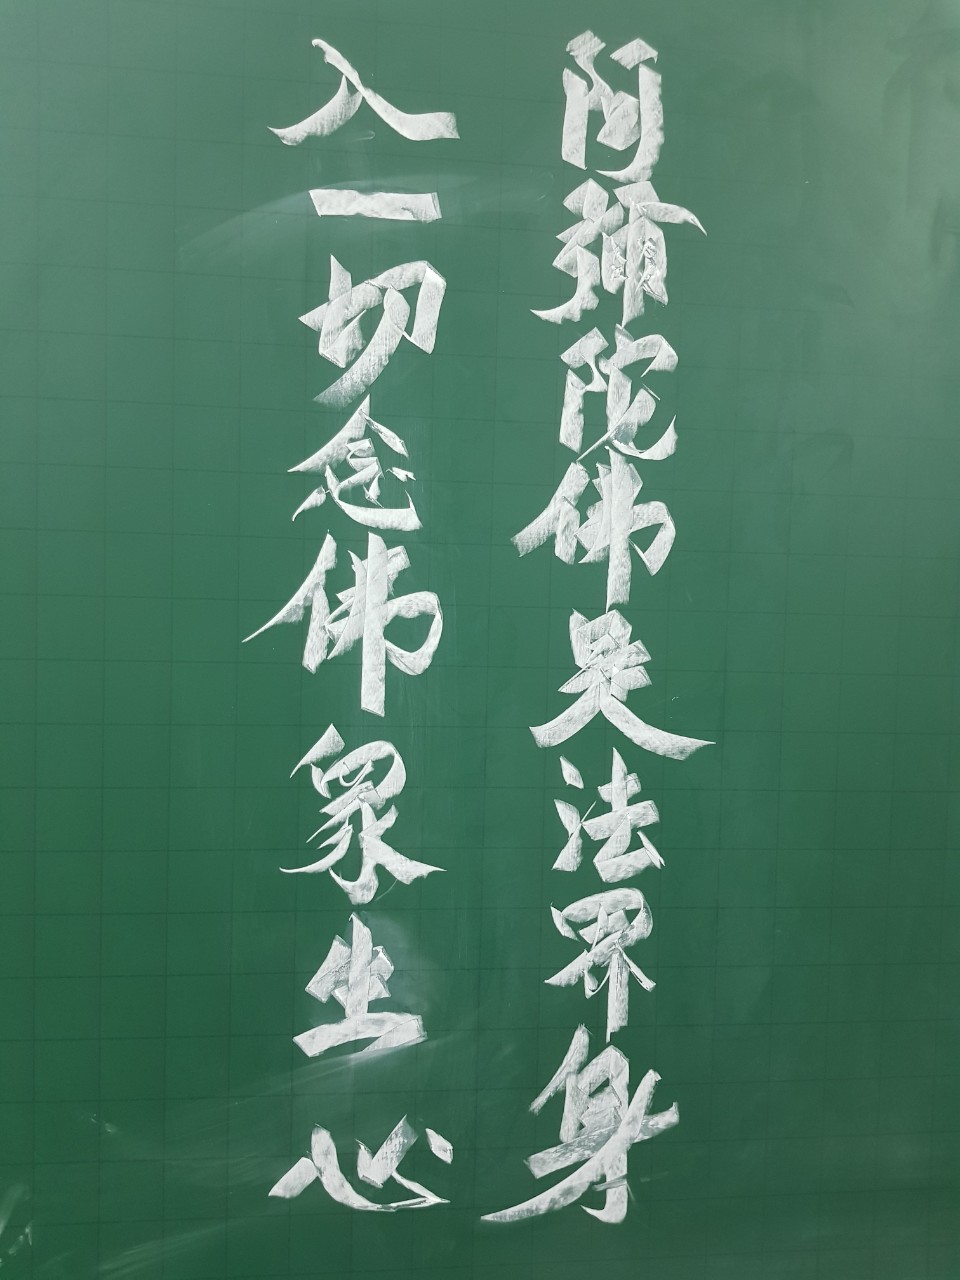 阿彌陀佛是法界身
入一切念佛眾生心